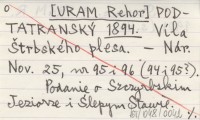 [URAM Rehor] POD-
TATRANSKÝ 1894. Vila
Štrbského plesa. – Nár.
Nov. 25, nr 95 i 96 (94 i 95?).
Podanie o Szczyrbskim
Jeziorze i Ślepym Stawie.